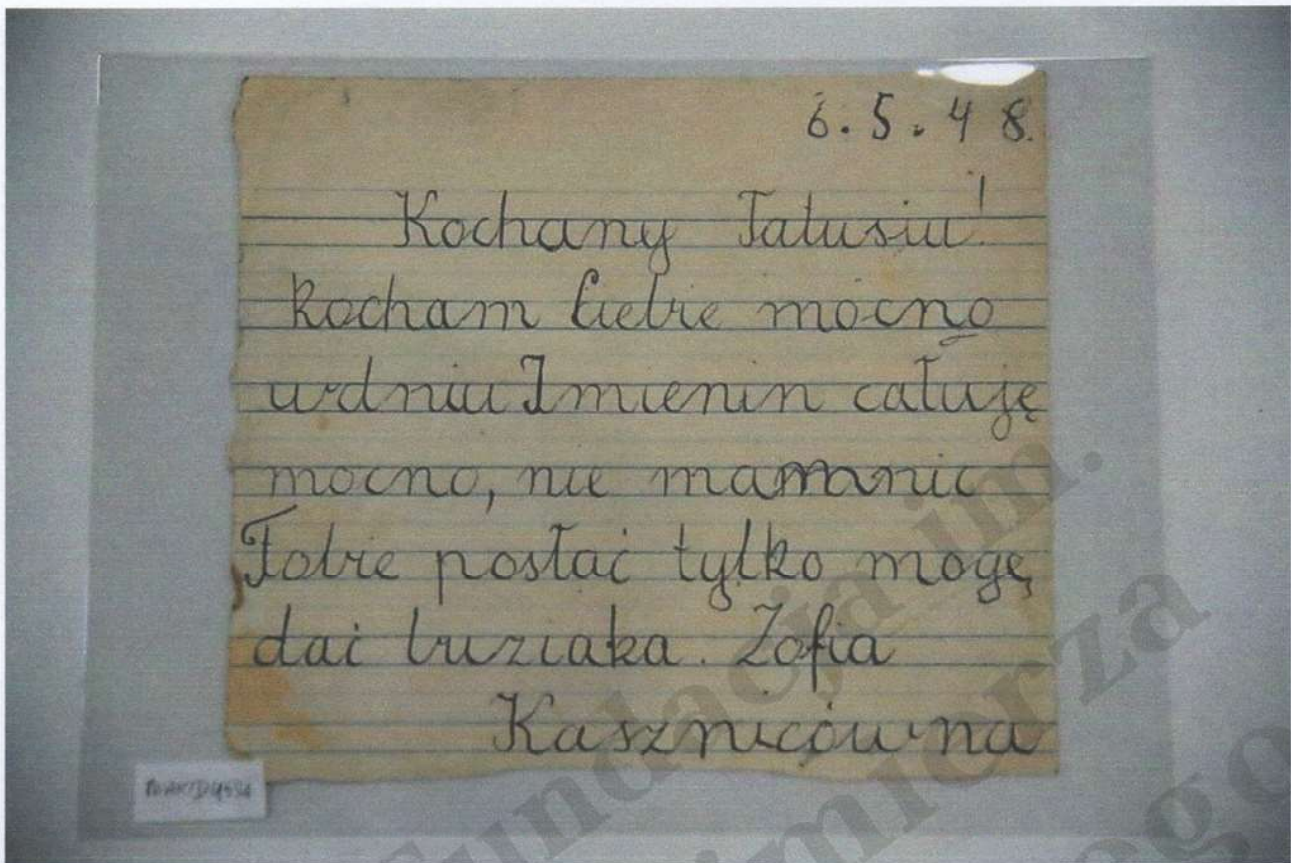 6.5.48.
Kochany Tatusiu!
kocham Ciebie mocno
wdniu Imienin całuję
mocno, nie mam nic
Tobie posłać tylko mogę
dać buziaka. Zofia
Kasznicówna
Fundacja im.